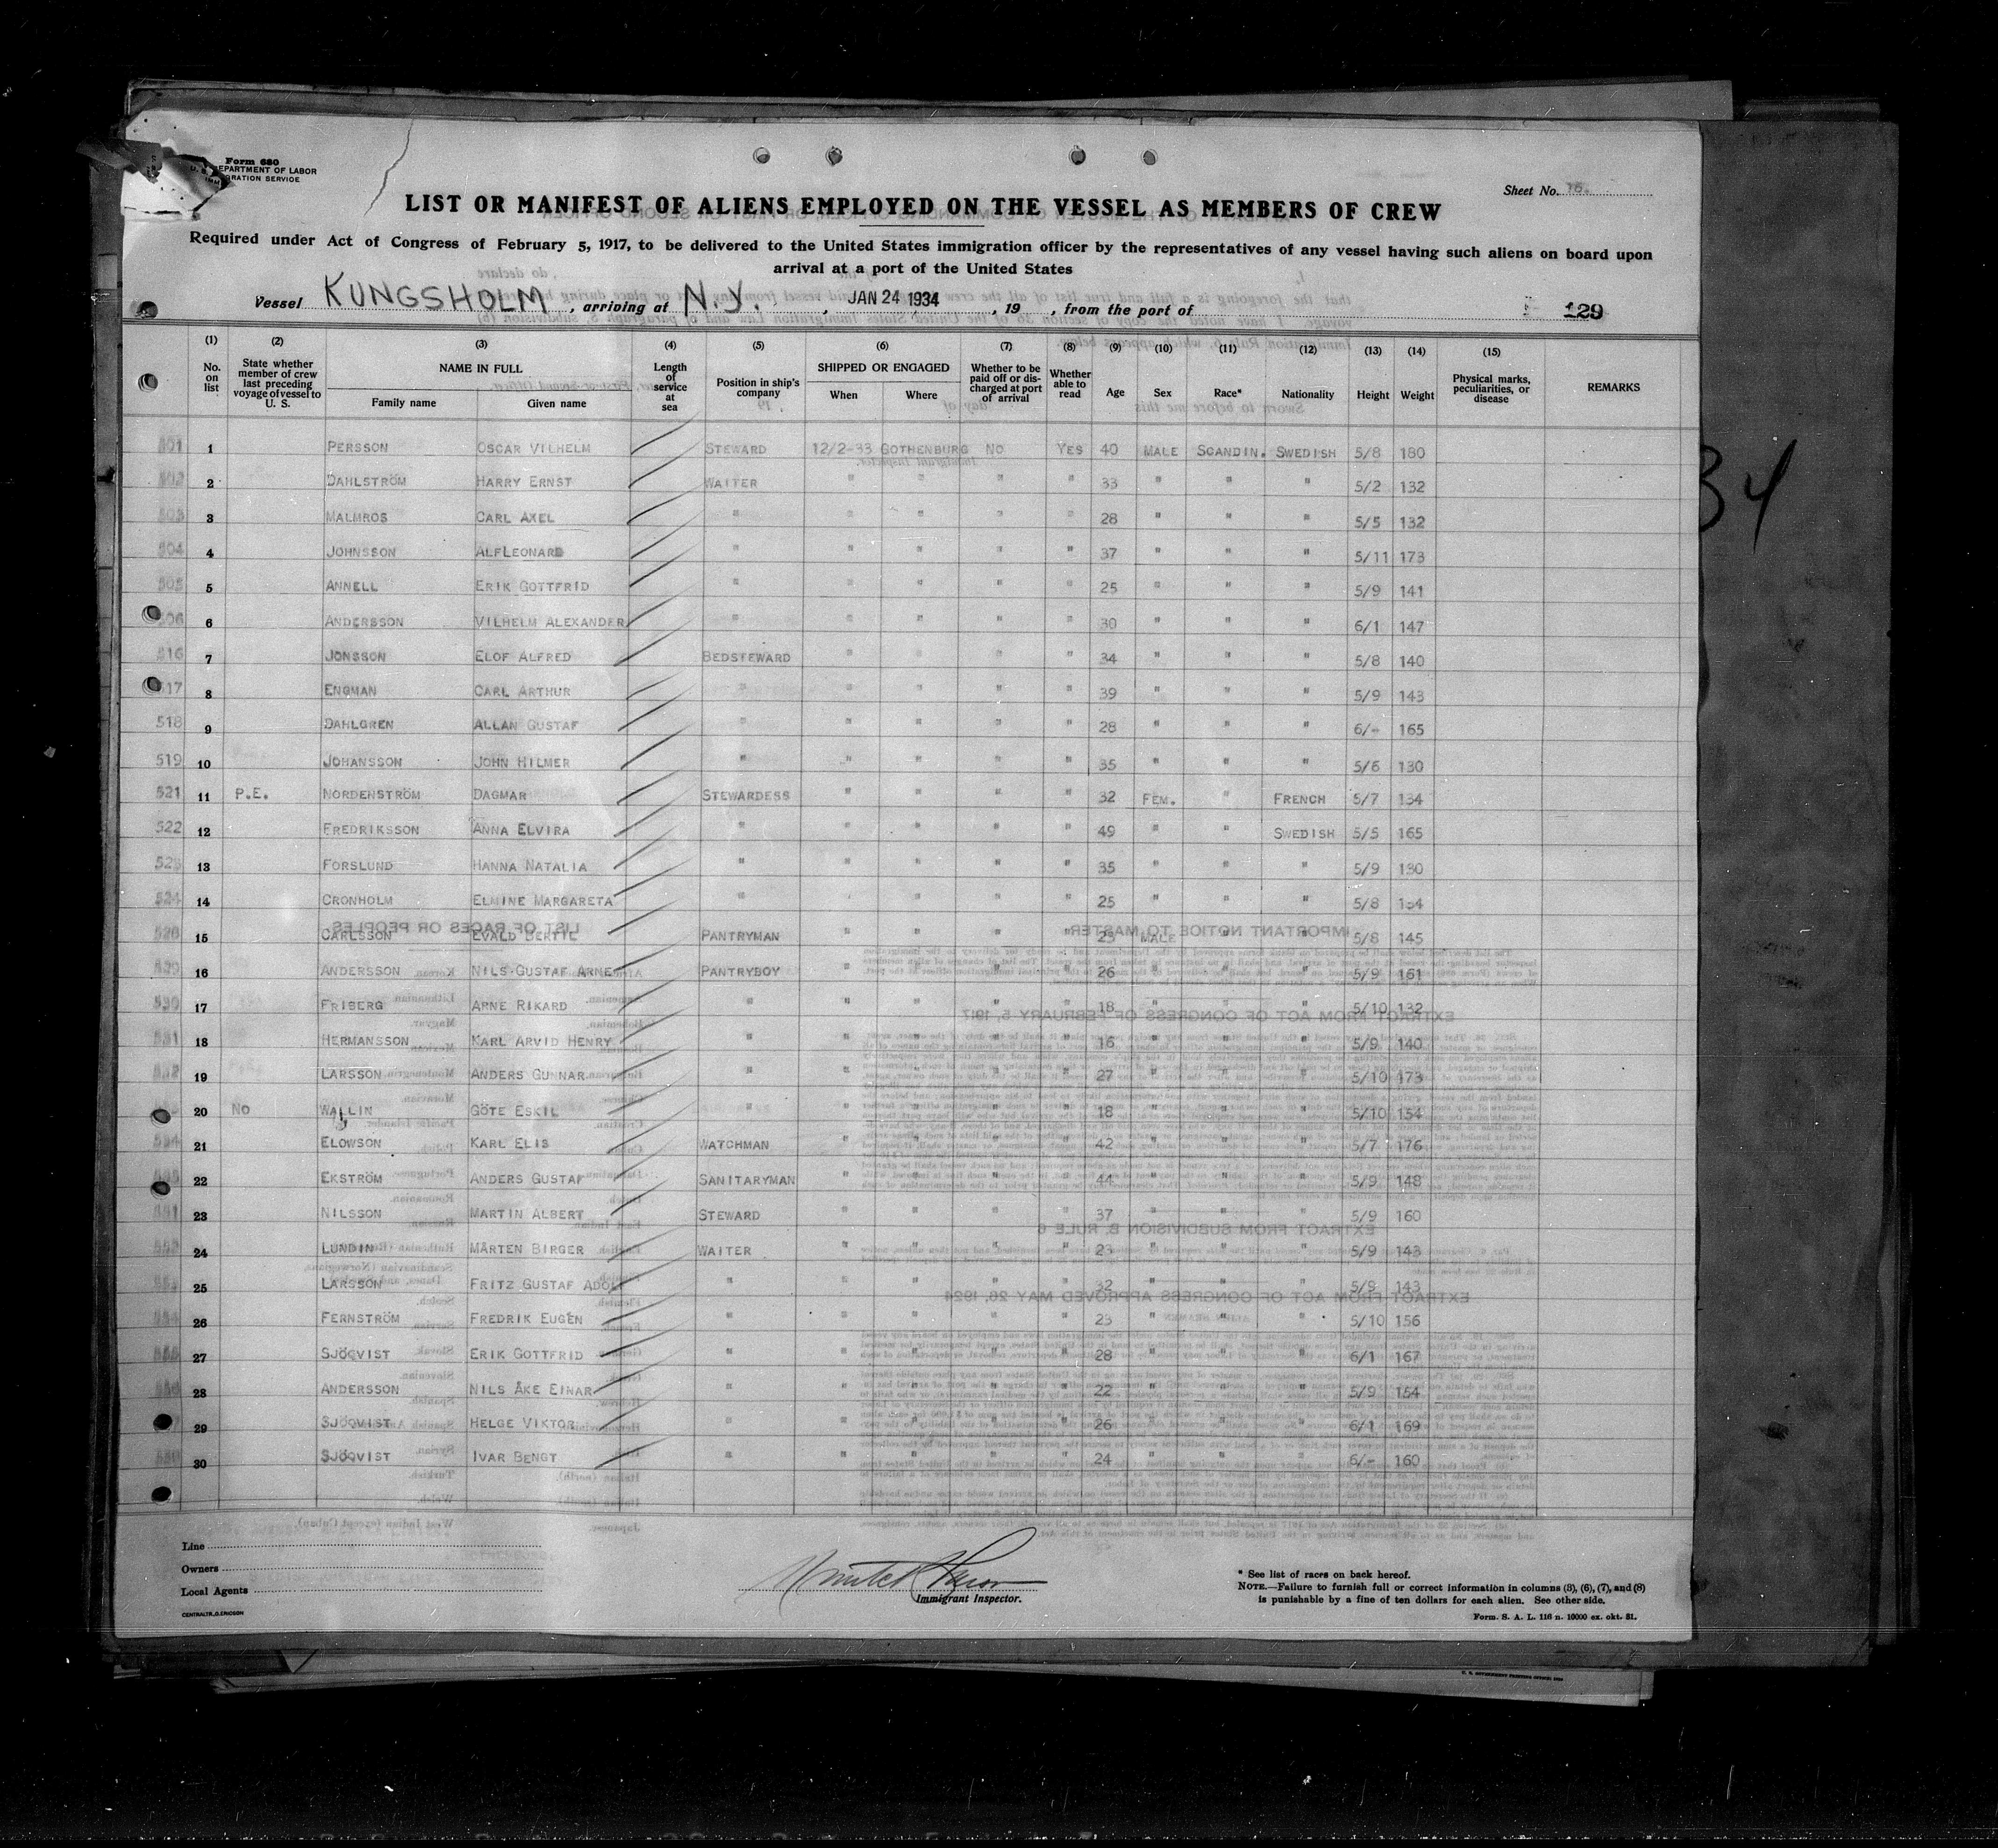 Form 680
U. S. DEPARTMENT OF LABOR
IMMIGRATION SERVICE
Sheet No. 16.
LIST OR MANIFEST OF ALIENS EMPLOYED ON THE VESSEL AS MEMBERS OF CREW
Required under Act of Congress of February 5, 1917, to be delivered to the United States immigration officer by the representatives of any vessel having such aliens on board upon
arrival at a port of the United States
Vessel KUNGSHOLM, arriving at N.Y., JAN 24 1934, 19 , from the port of 129
(1) (2) (3) (4) (5) (6) (7) (8) (9) (10) (11) (12) (13) (14) (15)
No. on list State whether member of crew last preceding voyage of vessel to U. S. NAME IN FULL Family name Given name Length of service at sea Position in ship's company SHIPPED OR ENGAGED When Where Whether to be paid off or discharged at port of arrival Whether able to read Age Sex Race* Nationality Height Weight Physical marks, peculiarities, or disease REMARKS
501 1 PERSSON OSCAR VILHELM STEWARD 12/2-33 GOTHENBURG NO YES 40 MALE SCANDIN. SWEDISH 5/8 180
502 2 DAHLSTRÖM HARRY ERNST WAITER " " " " 33 " " " 5/2 132
503 3 MALMROS CARL AXEL " " " " " 28 " " " 5/5 132
504 4 JOHNSSON ALFLEONARD " " " " " 37 " " " 5/11 173
505 5 ANNELL ERIK GOTTFRID " " " " " 25 " " " 5/9 141
506 6 ANDERSSON VILHELM ALEXANDER " " " " " 30 " " " 6/1 147
516 7 JONSSON ELOF ALFRED BEDSTEWARD " " " " 34 " " " 5/8 140
517 8 ENGMAN CARL ARTHUR " " " " " 39 " " " 5/9 143
518 9 DAHLGREN ALLAN GUSTAF " " " " " 28 " " " 6/- 165
519 10 JOHANSSON JOHN HILMER " " " " " 35 " " " 5/6 130
521 11 P.E. NORDENSTRÖM DAGMAR STEWARDESS " " " " 32 FEM. " FRENCH 5/7 134
522 12 FREDRIKSSON ANNA ELVIRA " " " " " 49 " " SWEDISH 5/5 165
523 13 FORSLUND HANNA NATALIA " " " " " 35 " " " 5/9 130
524 14 CRONHOLM ELMINE MARGARETA " " " " " 25 " " " 5/8 134
15 CARLSSON EVALD BERTIL PANTRYMAN " " " " 29 MALE " " 5/8 145
16 ANDERSSON NILS-GUSTAF ARNE PANTRYBOY " " " " 26 " " " 5/9 161
530 17 FRIBERG ARNE RIKARD " " " " " 18 " " " 5/10 132
531 18 HERMANSSON KARL ARVID HENRY " " " " " 16 " " " 5/9 140
532 19 LARSSON ANDERS GUNNAR " " " " " 27 " " " 5/10 173
20 NO WALLIN GÖTE ESKIL " " " " " 18 " " " 5/10 154
534 21 ELOWSON KARL ELIS WATCHMAN " " " " 42 " " " 5/7 176
22 EKSTRÖM ANDERS GUSTAF SANITARYMAN " " " " 44 " " " 5/9 148
23 NILSSON MARTIN ALBERT STEWARD " " " " 37 " " " 5/9 160
24 LUNDIN MÅRTEN BIRGER WAITER " " " " 23 " " " 5/9 143
25 LARSSON FRITZ GUSTAF ADOLF " " " " " 32 " " " 5/9 143
26 FERNSTRÖM FREDRIK EUGÈN " " " " " 23 " " " 5/10 156
27 SJÖQVIST ERIK GOTTFRID " " " " " 28 " " " 6/1 167
28 ANDERSSON NILS ÅKE EINAR " " " " " 22 " " " 5/9 154
29 SJÖQVIST HELGE VIKTOR " " " " " 26 " " " 6/1 169
30 SJÖQVIST IVAR BENGT " " " " " 24 " " " 6/- 160
Line
Owners
Local Agents
CENTRALTR., G. ERICSON
Immigrant Inspector.
* See list of races on back hereof.
NOTE.—Failure to furnish full or correct information in columns (3), (6), (7), and (8)
is punishable by a fine of ten dollars for each alien. See other side.
Form. S. A. L. 116 n. 10000 ex. okt. 31.
34